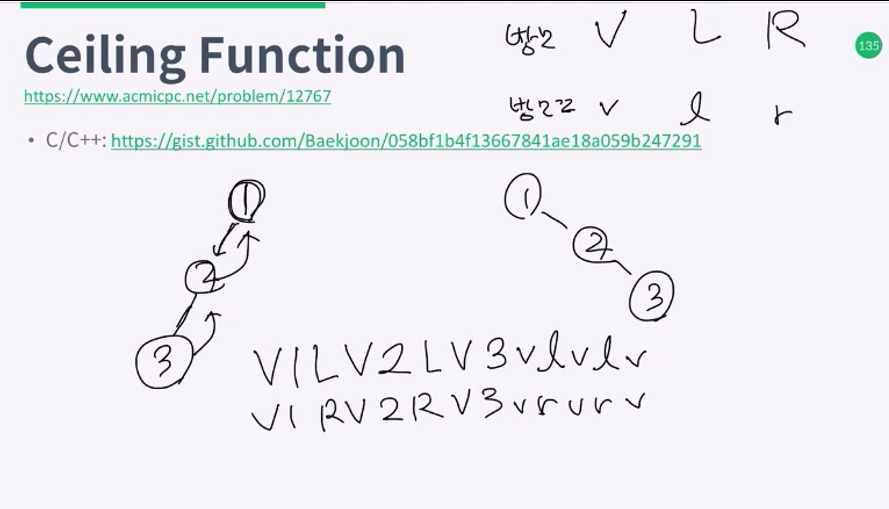 Ceiling Function
https://www.acmicpc.net/problem/12767
• C/C++: https://gist.github.com/Baekjoon/058bf1b4f13667841ae18a059b247291
135
방문 V L R
방문끝 v l r
1
2
3
1
2
3
V1LV2LV3vlvlv
V1RV2RV3vrvrv